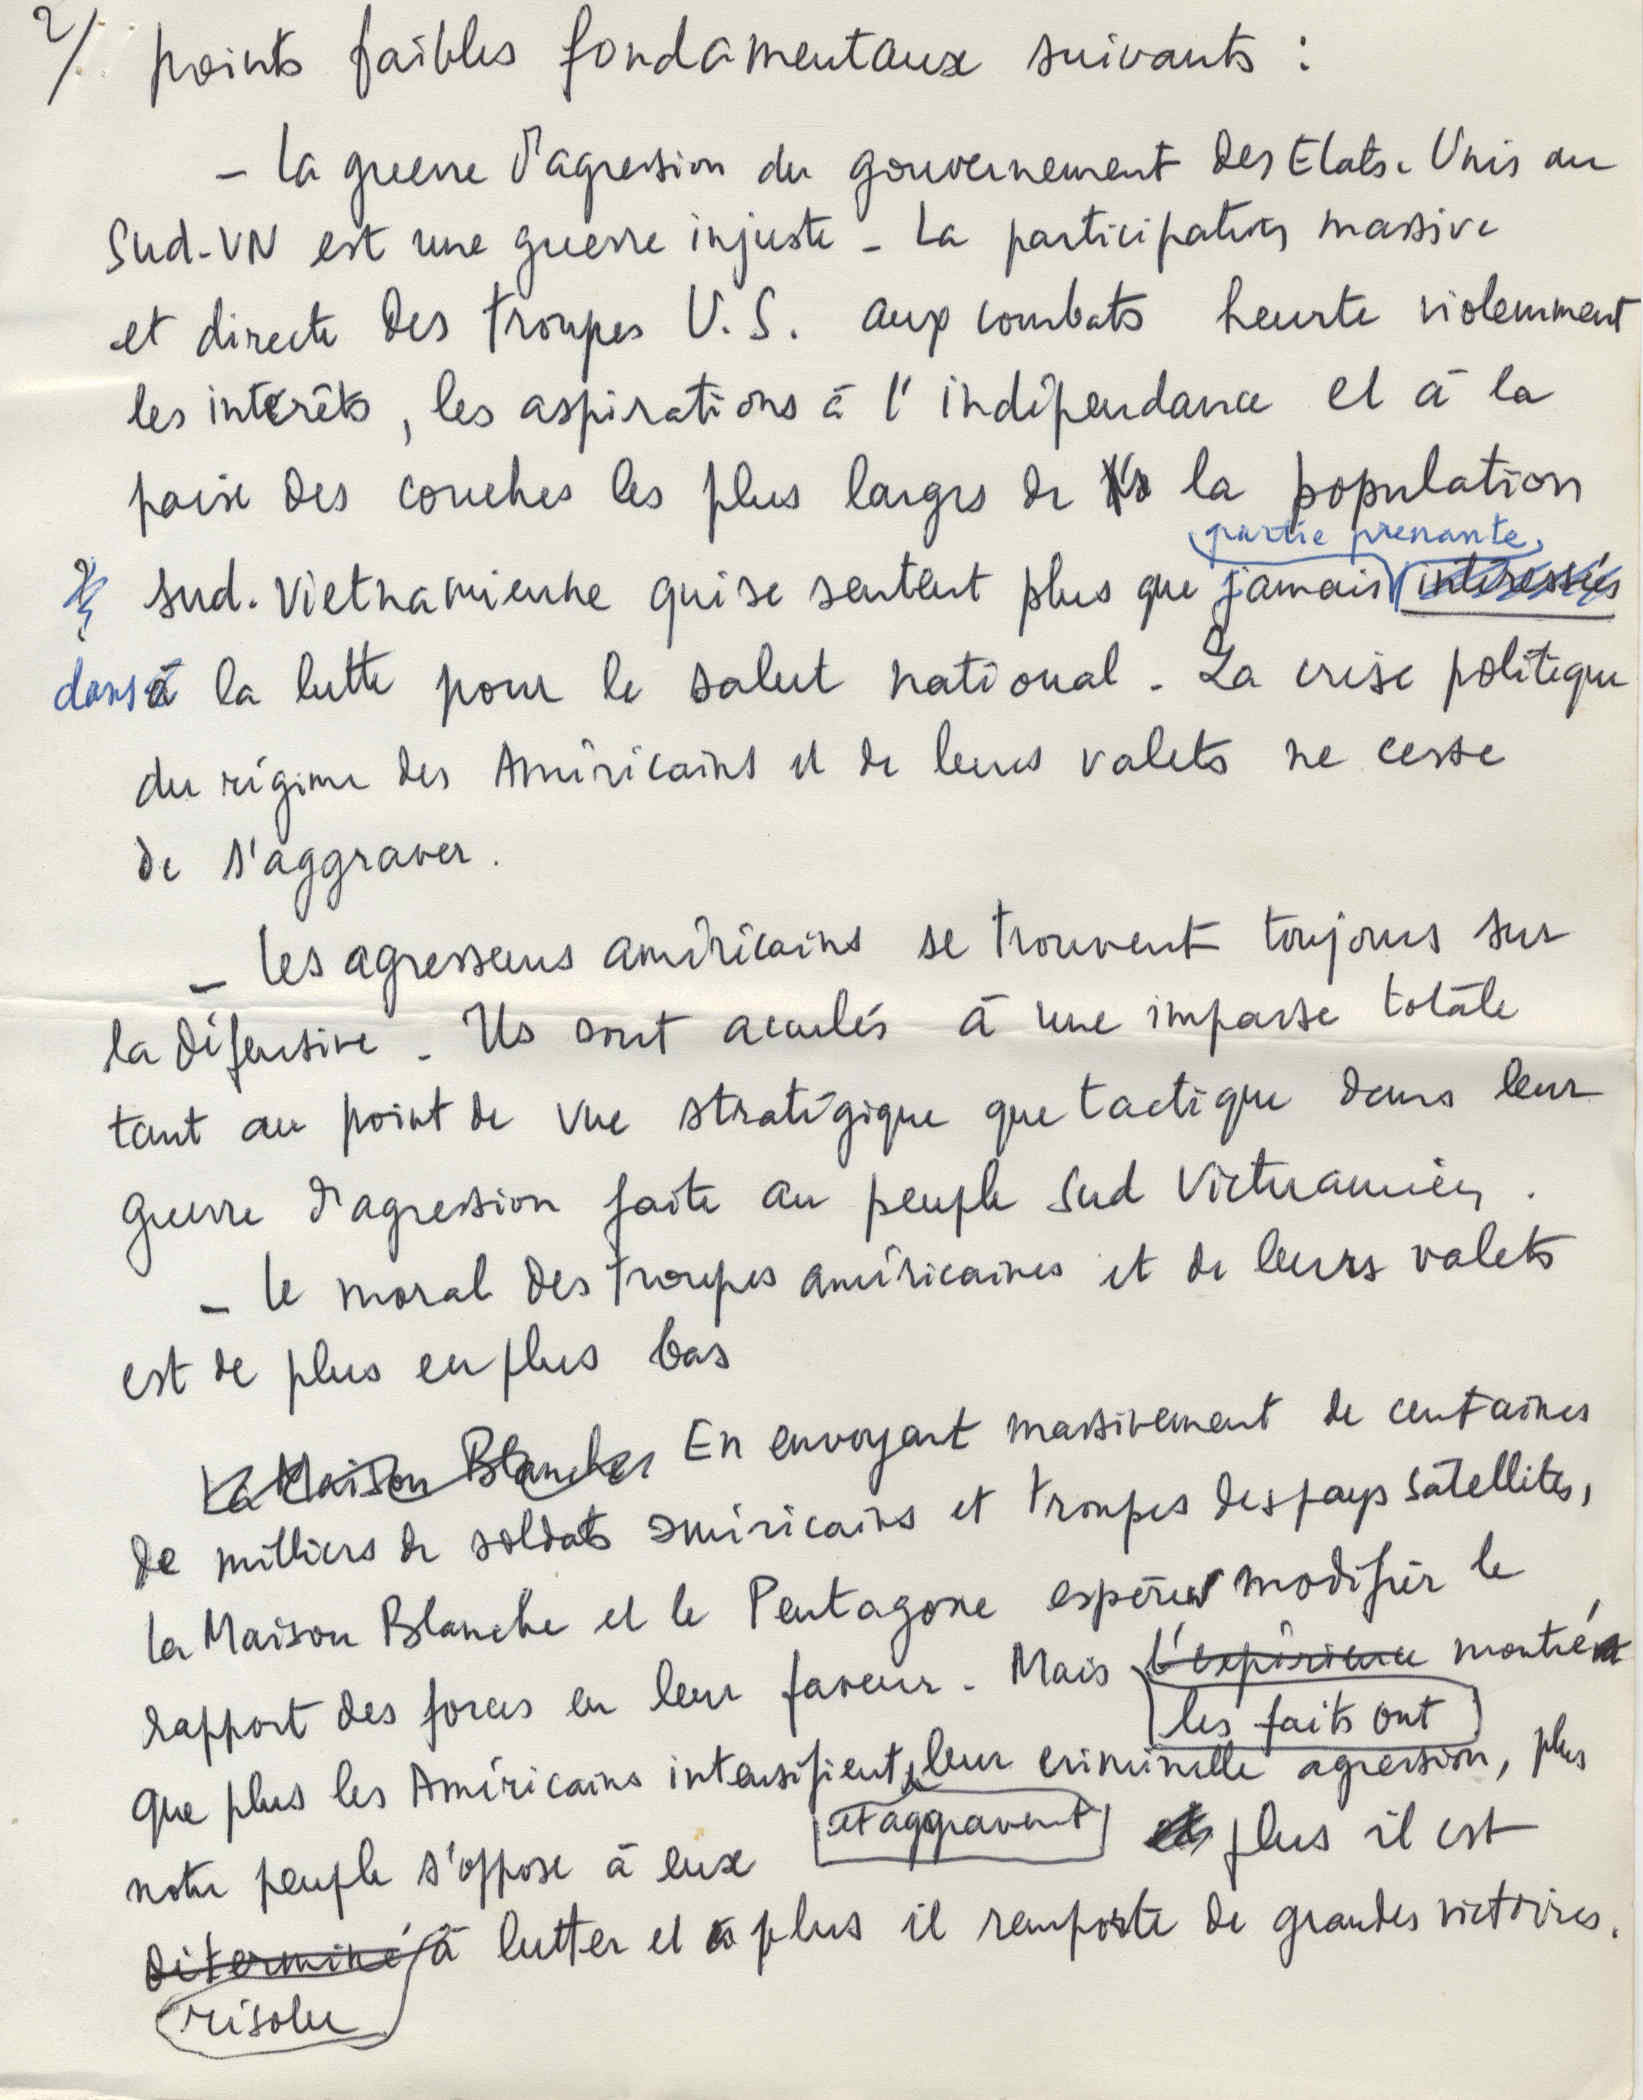 2/ points faibles fondamentaux suivants :
- la guerre d'agression du gouvernement des Etats-Unis au
Sud-VN est une guerre injuste - La participation massive
et directe des troupes U.S. aux combats heurte violemment
les intérêts, les aspirations à l'indépendance et à la
paix des couches les plus larges de la population
partie prenante,
sud-Vietnamienne qui se sentent plus que jamais intéressées
dans à la lutte pour le salut national. La crise politique
du régime des Américains et de leurs valets ne cesse
de s'aggraver.
- les agresseurs américains se trouvent toujours sur
la défensive. Ils sont acculés à une impasse totale
tant au point de vue stratégique que tactique dans leur
guerre d'agression faite au peuple Sud Vietnamien.
- le moral des troupes américaines et de leurs valets
est de plus en plus bas
La Maison Blanche En envoyant massivement de centaines
de milliers de soldats américains et troupes des pays satellites,
la Maison Blanche et le Pentagone espérer modifier le
rapport des forces en leur faveur. Mais l'expérience montré
les faits ont
que plus les Américains intensifient leur criminelle agression, plus
et aggravent
notre peuple s'oppose à eux et plus il est
déterminé à lutter et plus il remporte de grandes victoires.
résolu